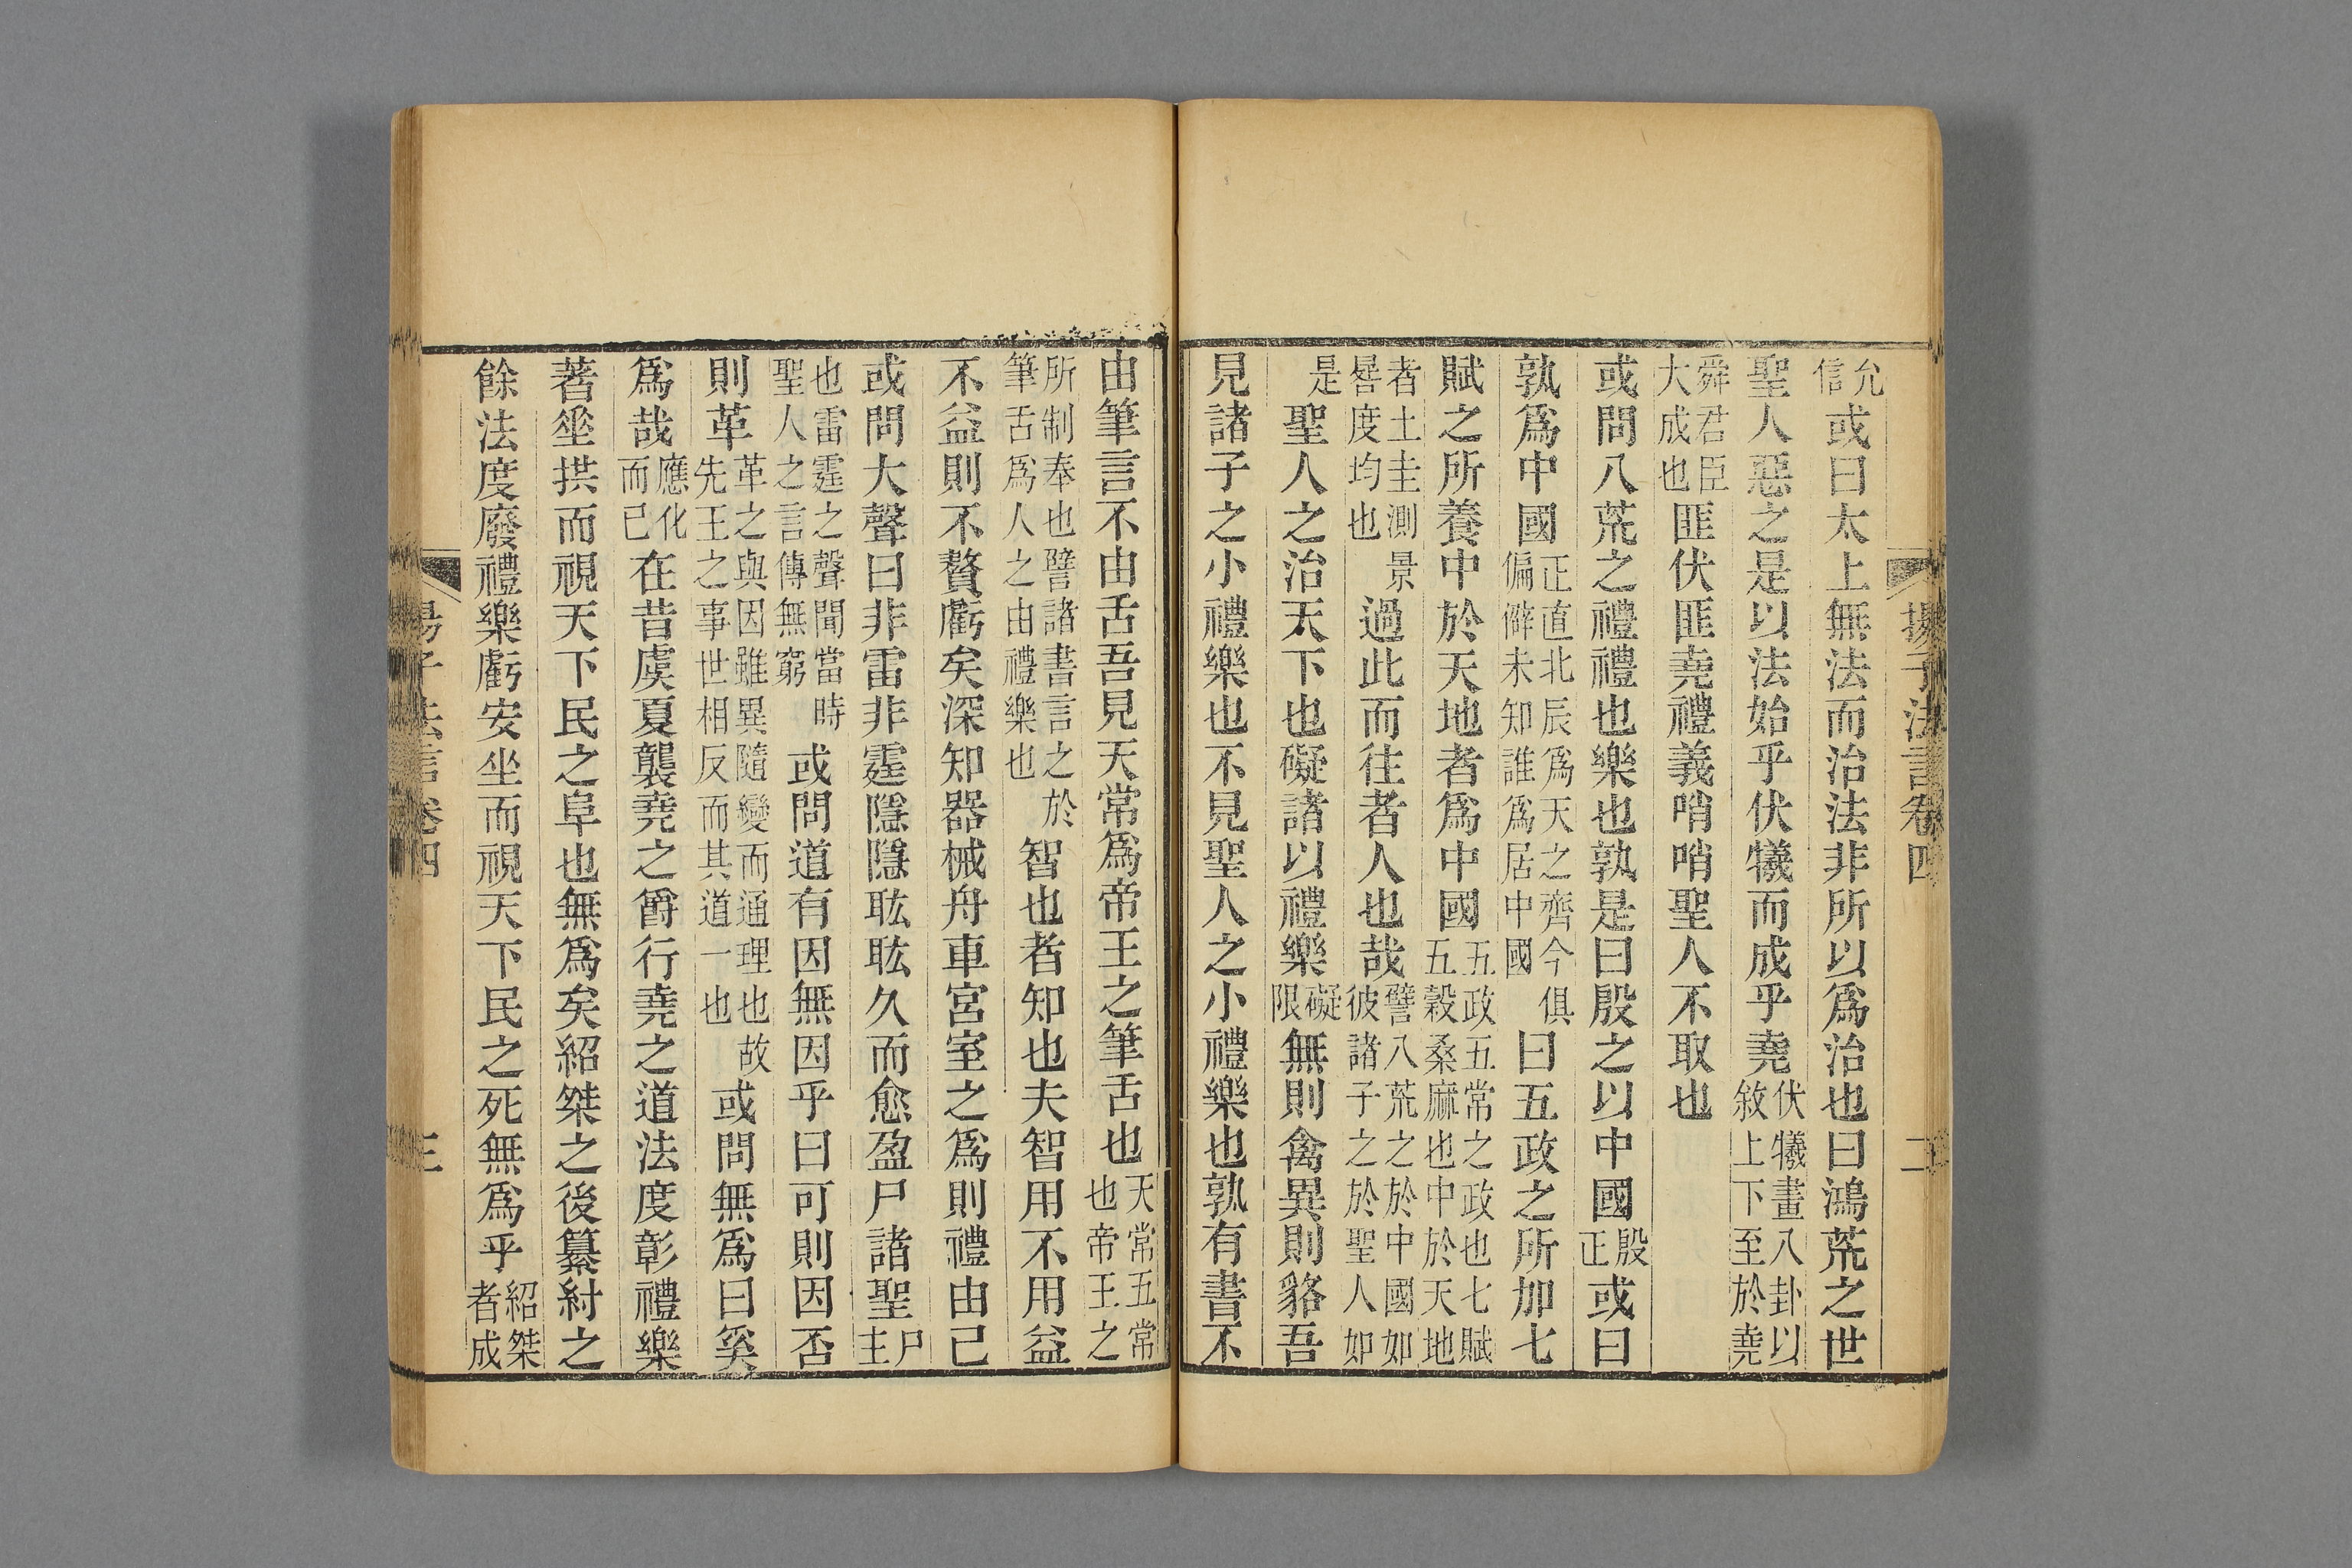 揚子法言卷四 二
允信或曰太上無法而治法非所以爲治也曰鴻荒之世
聖人惡之是以法始乎伏犧而成乎堯伏犧畫八卦以敘上下至於堯
舜君臣大成也匪伏匪堯禮義哨哨聖人不取也
或問八荒之禮禮也樂也孰是曰殷之以中國殷正或曰
孰爲中國正直北辰爲天之齊今俱偏僻未知誰爲居中國曰五政之所加七
賦之所養中於天地者爲中國五政五常之政也七賦五穀桑麻也中於天地
者土圭測景晷度均也過此而往者人也哉譬八荒之於中國如彼諸子之於聖人如
是聖人之治天下也礙諸以禮樂礙限無則禽異則貉吾
見諸子之小禮樂也不見聖人之小禮樂也孰有書不
由筆言不由舌吾見天常爲帝王之筆舌也天常五常也帝王之
所制奉也譬諸書言之於筆舌爲人之由禮樂也智也者知也夫智用不用益
不益則不贅虧矣深知器械舟車宮室之爲則禮由己
或問大聲曰非雷非霆隱隱耾耾久而愈盈尸諸聖尸主
也雷霆之聲聞當時聖人之言傳無窮或問道有因無因乎曰可則因否
則革革之與因雖異隨變而通理也故先王之事世相反而其道一也或問無爲曰奚
爲哉應化而已在昔虞夏襲堯之爵行堯之道法度彰禮樂
著坐拱而視天下民之阜也無爲矣紹桀之後纂紂之
餘法度廢禮樂虧安坐而視天下民之死無爲乎紹桀者成
揚子法言卷四 三